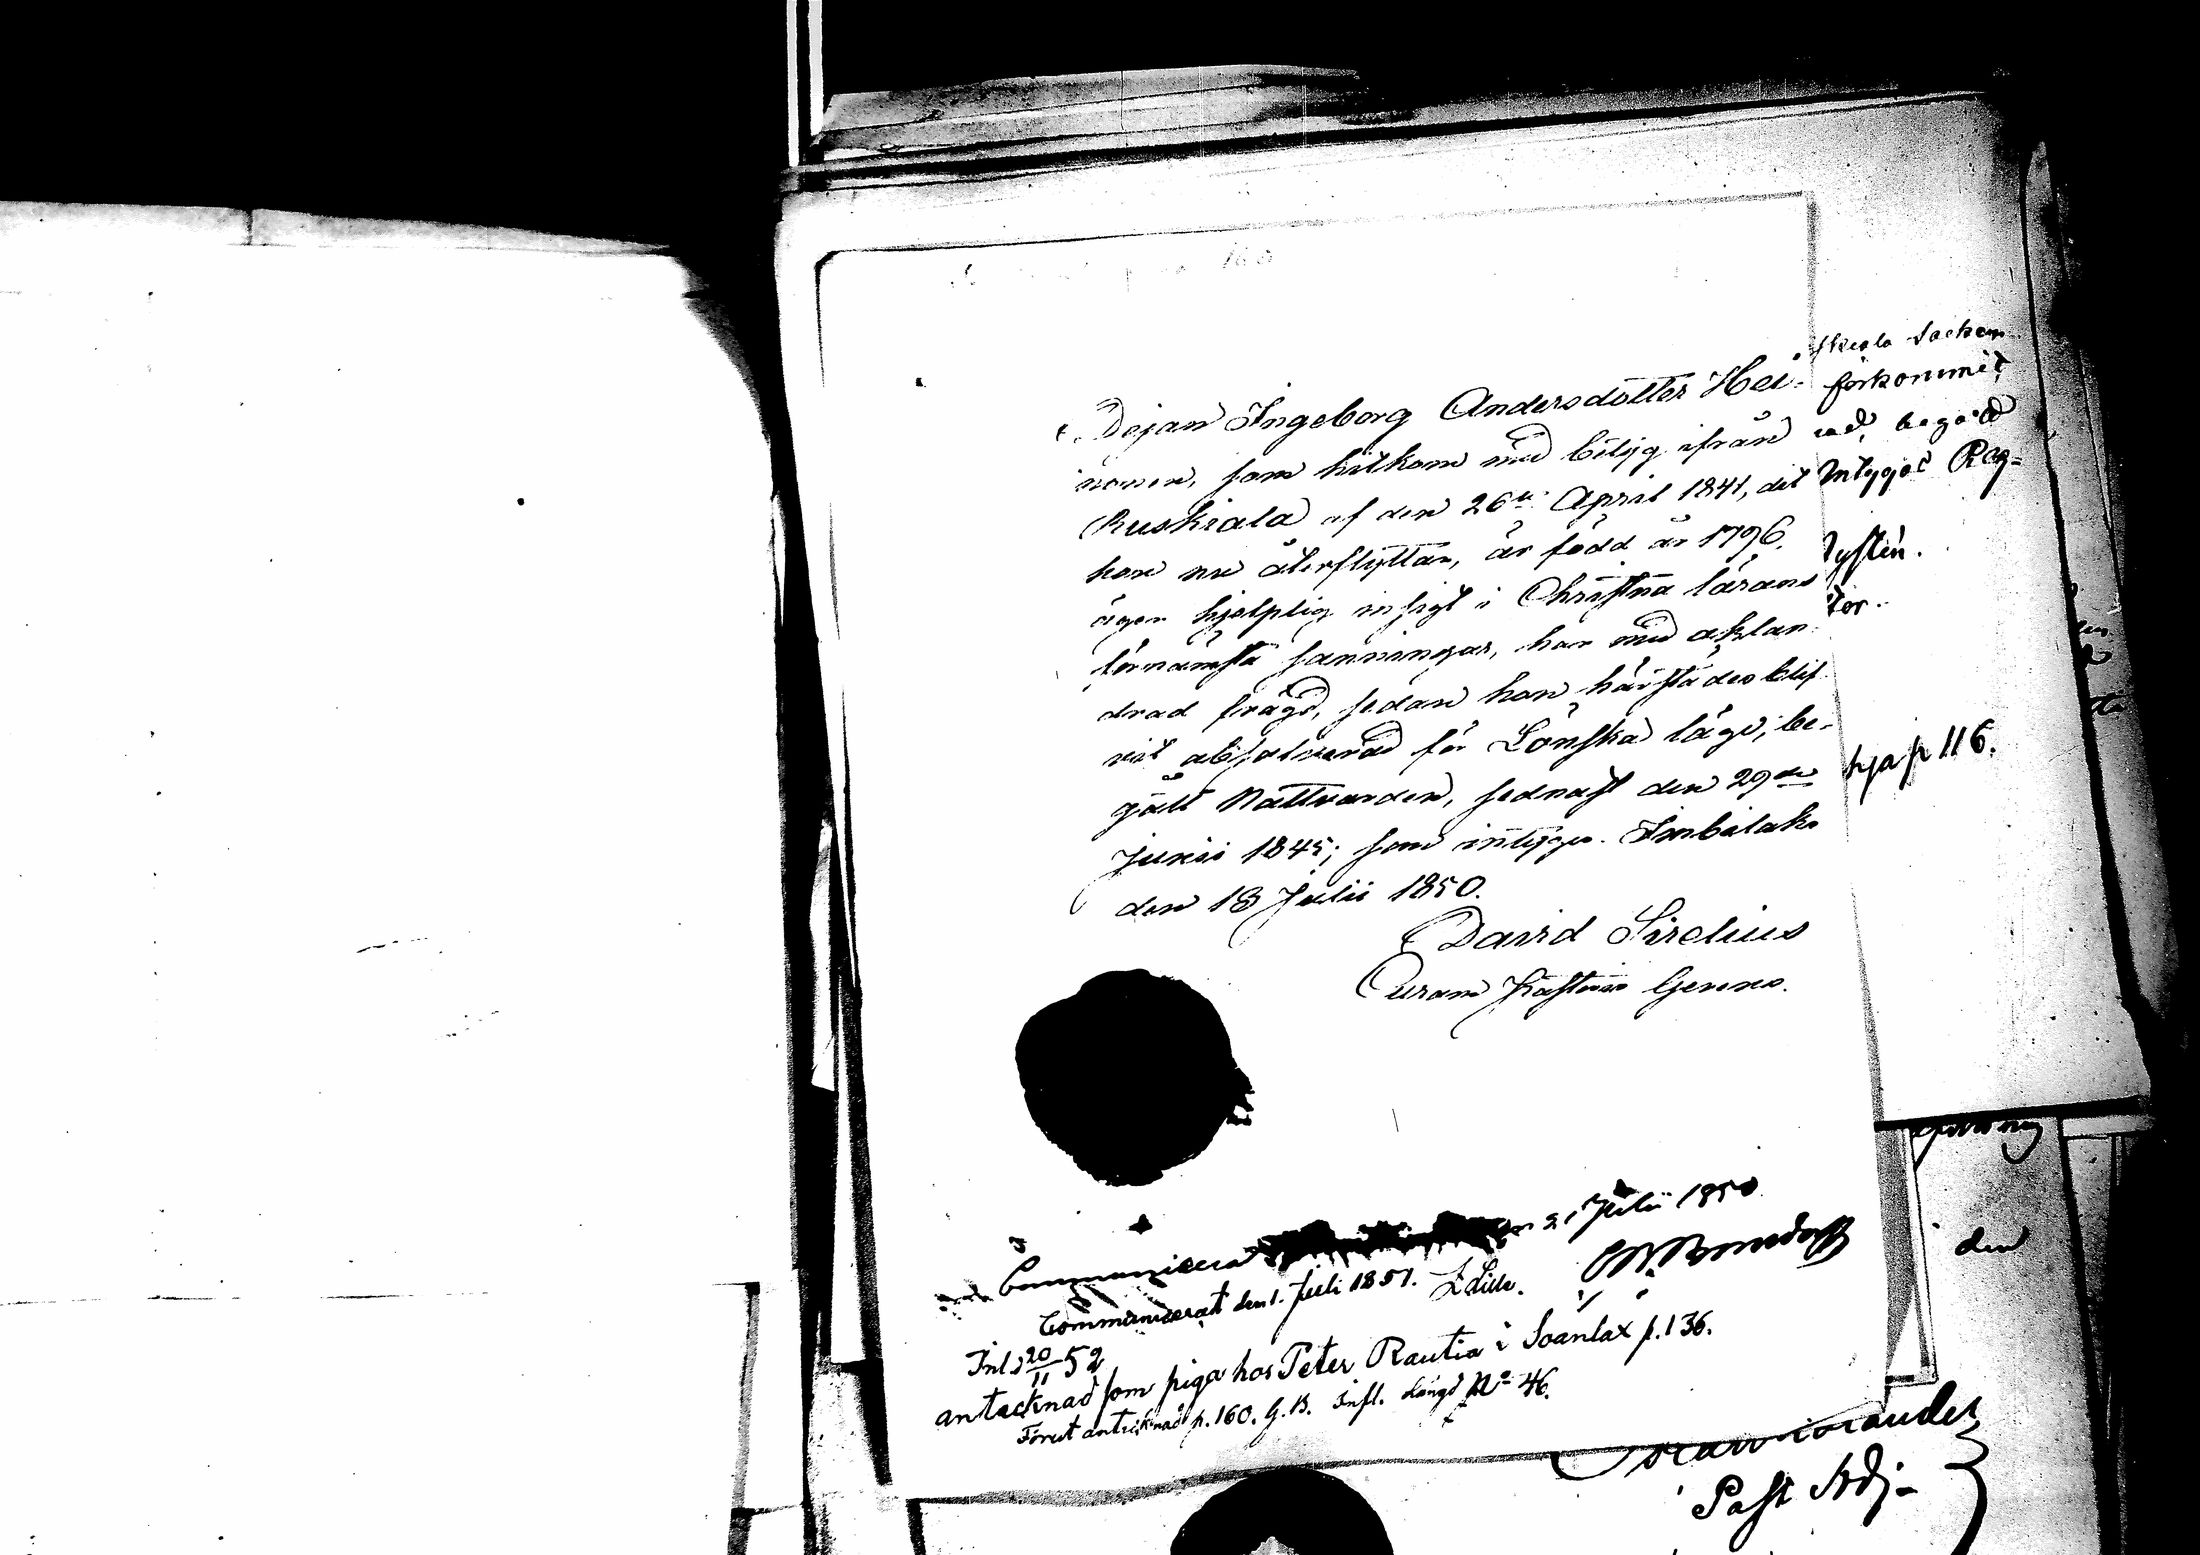 Dejan Ingeborg Andersdotter Hei-
nonen, som hitkom med bitÿg ifrån
Ruskiala af den 26te April 1841, dit
hon nu återflyttar, är född år 1796,
äger hjelplig insigt i Christna lärans
förnämsta sanningar, har med aklan-
drad frägd, sedan hon härstädes blif-
vit absolverad för Lönska läge, be-
gått Nattvarden, sednast den 29de
Junii 1845; som intÿgar. Imbilaks
den 18 Julii 1850.
David Sirelius
Curam Pastoris Gerens.
Communicerat
21 Julii 1850
Communicerat den 1. Juli 1851. Lilli.
Inl. d 20/11 52
antecknad som piga hos Peter Rautia i Soanlax p. 136.
Förut antecknad p. 160. G. B. Infl. Längd No 46.
skiala Socken
förkommit,
ved, begärd
Intygas Reg-
tor.
p 116.
den
Past Adj-